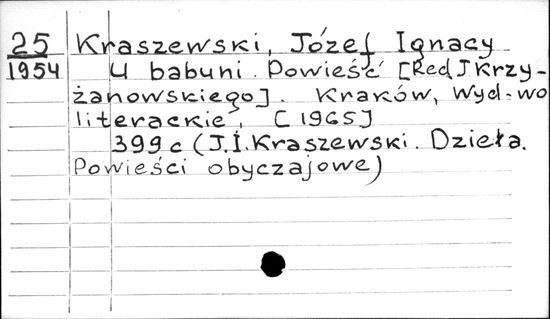 25 Kraszewski, Józef Ignacy
1954 U babuni. Powieść [Red J Krzy-
żanowskiego]. Kraków, Wyd-wo
literackie, [1965]
399 c (J.I.Kraszewski. Dzieła.
Powieści obyczajowe)